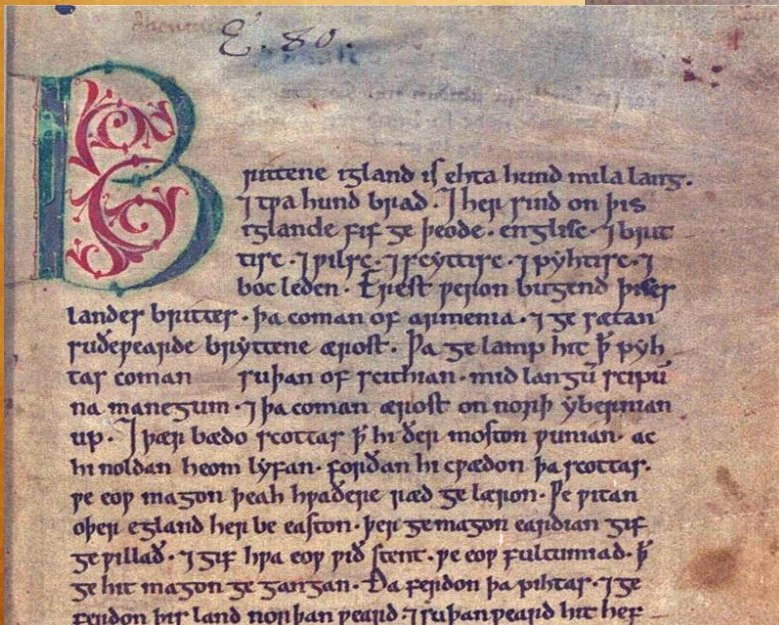 E. 80.
Brittene igland is ehta hund mila lang.
⁊ tpa hund brad. ⁊ her sind on þis
iglande fif ge þeode. englisc. ⁊ brit
tisc. ⁊ pilsc. ⁊ scyttisc. ⁊ pyhtisc. ⁊
boc leden. Erest peron bugend þises
landes brittes. þa coman of armenia. ⁊ ge sætan
suðepearde bryttene ærost. Þa ge lamp hit ꝥ pyh
tas coman suþan of scithian. mid langū scipū
na manegum. ⁊ þa coman ærost on norþ ybernian
up. ⁊ þær bædo scottas ꝥ hi ðer moston punian. ac
hi noldan heom lyfan. forðan hi cpædon þa scottas.
pe eop magon þeah hpaðere ræd ge læron. Þe pitan
oþer egland her be easton. þer ge magon eardian gif
ge pillað. ⁊ gif hpa eop pið stent. pe eop fultumiað. ꝥ
ge hit magon ge gangan. Ða ferdon þa pihtas. ⁊ ge
ferdon þis land norþan peard. ⁊ suþan peard hit hef